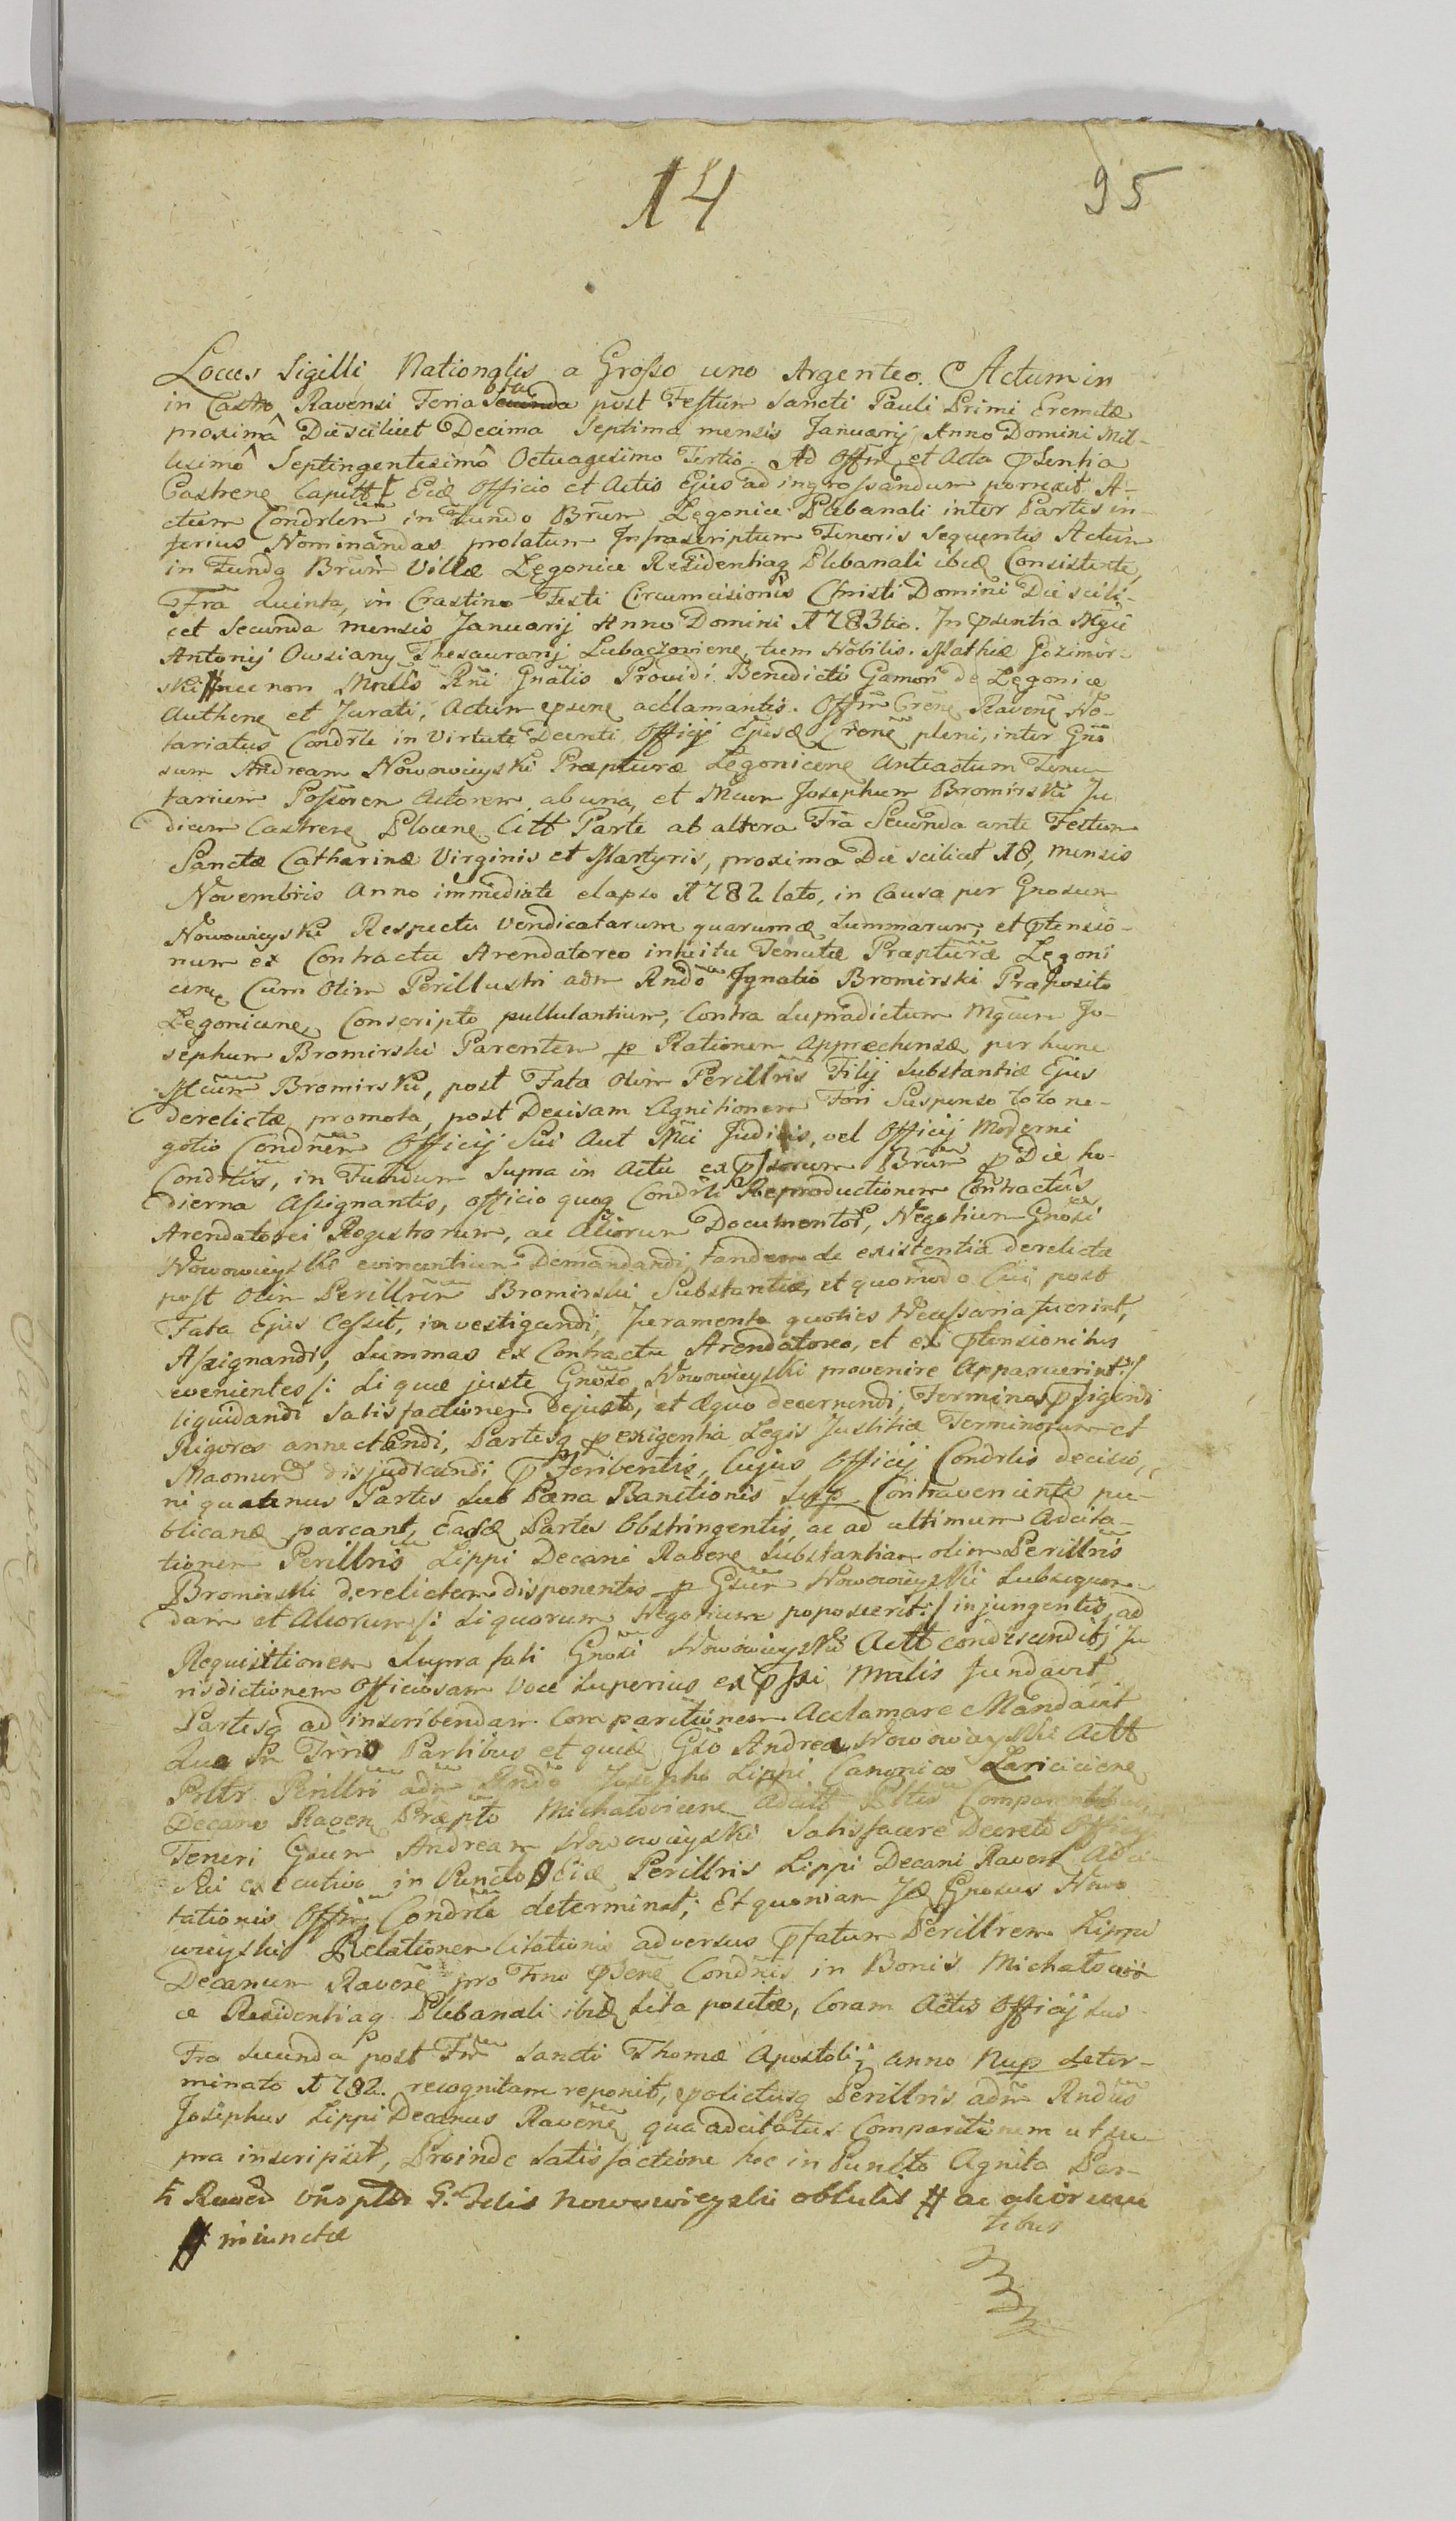 14
95
Locus Sigilli Nationalis a Grosso uno Argenteo. Actum in
in Castro Ravensi Feria 6ta Secunda post Festum Sancti Pauli Primi Eremitæ
proximâ Die scilicet Decima Septima mensis Januarij Anno Domini Mil-
lesimô Septingentesimô Octuagesimo Tertio. Ad Offm et Acta p̄sentia
Castrenę Capitt Eidę Officio et Actis Ejus ad ingrossandum porrexit A-
ctum Condrlem in Fundo Brum Lęgonice Plebanali inter Partes in-
ferius Nominandas prolatum Infrascriptum Tenoris Sequentis Actum
in Fundo Brum Villæ Lęgonice Residentiaq Plebanali ibidę Consistente,
Fra Quinta, in Crastino Festi Circumcisionis Christi Domini Die scili-
cet Secunda mensis Januarij Anno Domini 1783tio. In p̄sentia Mgci
Antonij Owsiany Thesaurarij Lubaczoviene, tum Nobilis Mathiæ
ski # nec non Providi Benedicti Gamon de Lęgonice
Authenę et Jurati, Actum p̄sens acclamantis. Offm Crenę Ravenę No-
tariatus Condrle in Virtute Decreti Officij Ejusdę Crenę pleni, inter Gno
sum Andream Nowowieyski Præpturæ Lęgonicenę Anteactum Tenu-
tarium Possorem Actorem ab una, et Mcum Josephum Bromirski Ju
dicem Castrenę Plocenę Citt Parte ab altera Fra Secunda ante Festum
Sanctæ Catharinæ Virginis et Martyris, proxima Die scilicet 18, mensis
Novembris Anno immediate elapso 1782 lato, in Causa per Gnosum
Nowowieyski Respectu Vendicatarum quarumdę Summarum, et p̄tensio-
num ex Contractu Arendatoreo intuitu Tenutæ Præpturæ Lęgoni
cenę Cum Olim Perillustri adm Rndo Ignatio Bromirski Præposito
Lęgonicenę Conscripto pullulantium, Contra Supradictum Mgcum Jo-
sephum Bromirski Parentem p Rationem Apprechensæ per hunc
Mcum Bromirski, post Fata Olim Perillris Filij Substantiæ Ejus
derelictæ promota, post Decisam Agnitionem Fori Suspenso toto ne-
gotio Condnem Officij Sui Aut Mci Judicis, vel Officij Moderni
Condrlis, in Fundum Supra in Actu exp̄ssorum Brum p Die ho-
dierna Assignantis, officio quoq Condrli Reproductionem Contractûs
Arendatorei Registrorum, ac Aliorum Documentor, Negotium Gnosi
Nowowieyski evincentium Demandandi, tandem de existentia derelicta
post Olim Perillrem Bromirski Substantiæ, et quomodo Cui post
Fata Ejus Cessit, investigandi, Juramenta quoties Necessaria fuerint,
Assignandi, Summas ex Contractu Arendatoreo, et ex p̄tensionibus
evenientes /: Si quæ juste Gnoso Nowowieyski provenire Apparuerint :/
liquidandi Satisfactionem de justo, et æquo decernendi, Terminos p̄figendi
Rigores annectendi, Partesq p exigentia Legis Justitiæ Terminorum et
disjudicandi p̄scribentis, Cujus Officij Condrlis decisio-
ni quatenus Partes Sub Pæna Banitionis Sup Contraveniente pu-
blicanę pareant, Easdę Partes Obstringentis, ac ad ultimum Adcita-
tionem Perillris Lippi Decani Ravenę Substantiam olim Perillris
Bromirski derelictam disponentis p Gsum Nowowieyski Subsequen-
dam et Aliorum /: Si quorum Negotium poposcerit :/ injungentis, ad
Requisitionem Supra fati Gnosi Nowowieyski Actt condescendit, Ju
risdictionem Officiosam voce Superius exp̄ssi Fundavit
Partesq ad inscribendam Comparitionem Acclamare Mandavit
Partibus et quidę Gso Andrea Nowowieyski Actt
Perillri adm Rndo Josepho Lippi Canonico
Decano Raven Præpto Michałovicene Adcitt Comparentibus
Teneri Gsum Andream Nowowieyski Satisfacere Decreto Officij
Sui executivo in Puncto Eidę Perillris Lippi Decani Raven Adci-
tationis Offm Condrle determinat; Et quoniam Idę Gnosus Nowo
wieyski Relationem Citationis adversus p̄fatum Perillrem Lippi
Decanum Ravenę pro Trno p̄senę Condnis in Bonis Michałowi
ce Residentiaq Plebanali ibidę Sita positæ, Coram Actis Officij Sui
Fra Secunda post Ftm Sancti Thomæ Apostoli; anno Nup deter-
minato 1782. recognitam reponit, Perillris adm Rndus
Josephus Lippi Decanus Ravenę qua adcitatus Comparitionem ut su-
pra inscripsit, Proinde Satisfactione hoc in Puncto Agnita Par-
tibus
Nowowieyski oblulit # ac aliorum
# iniunctæ